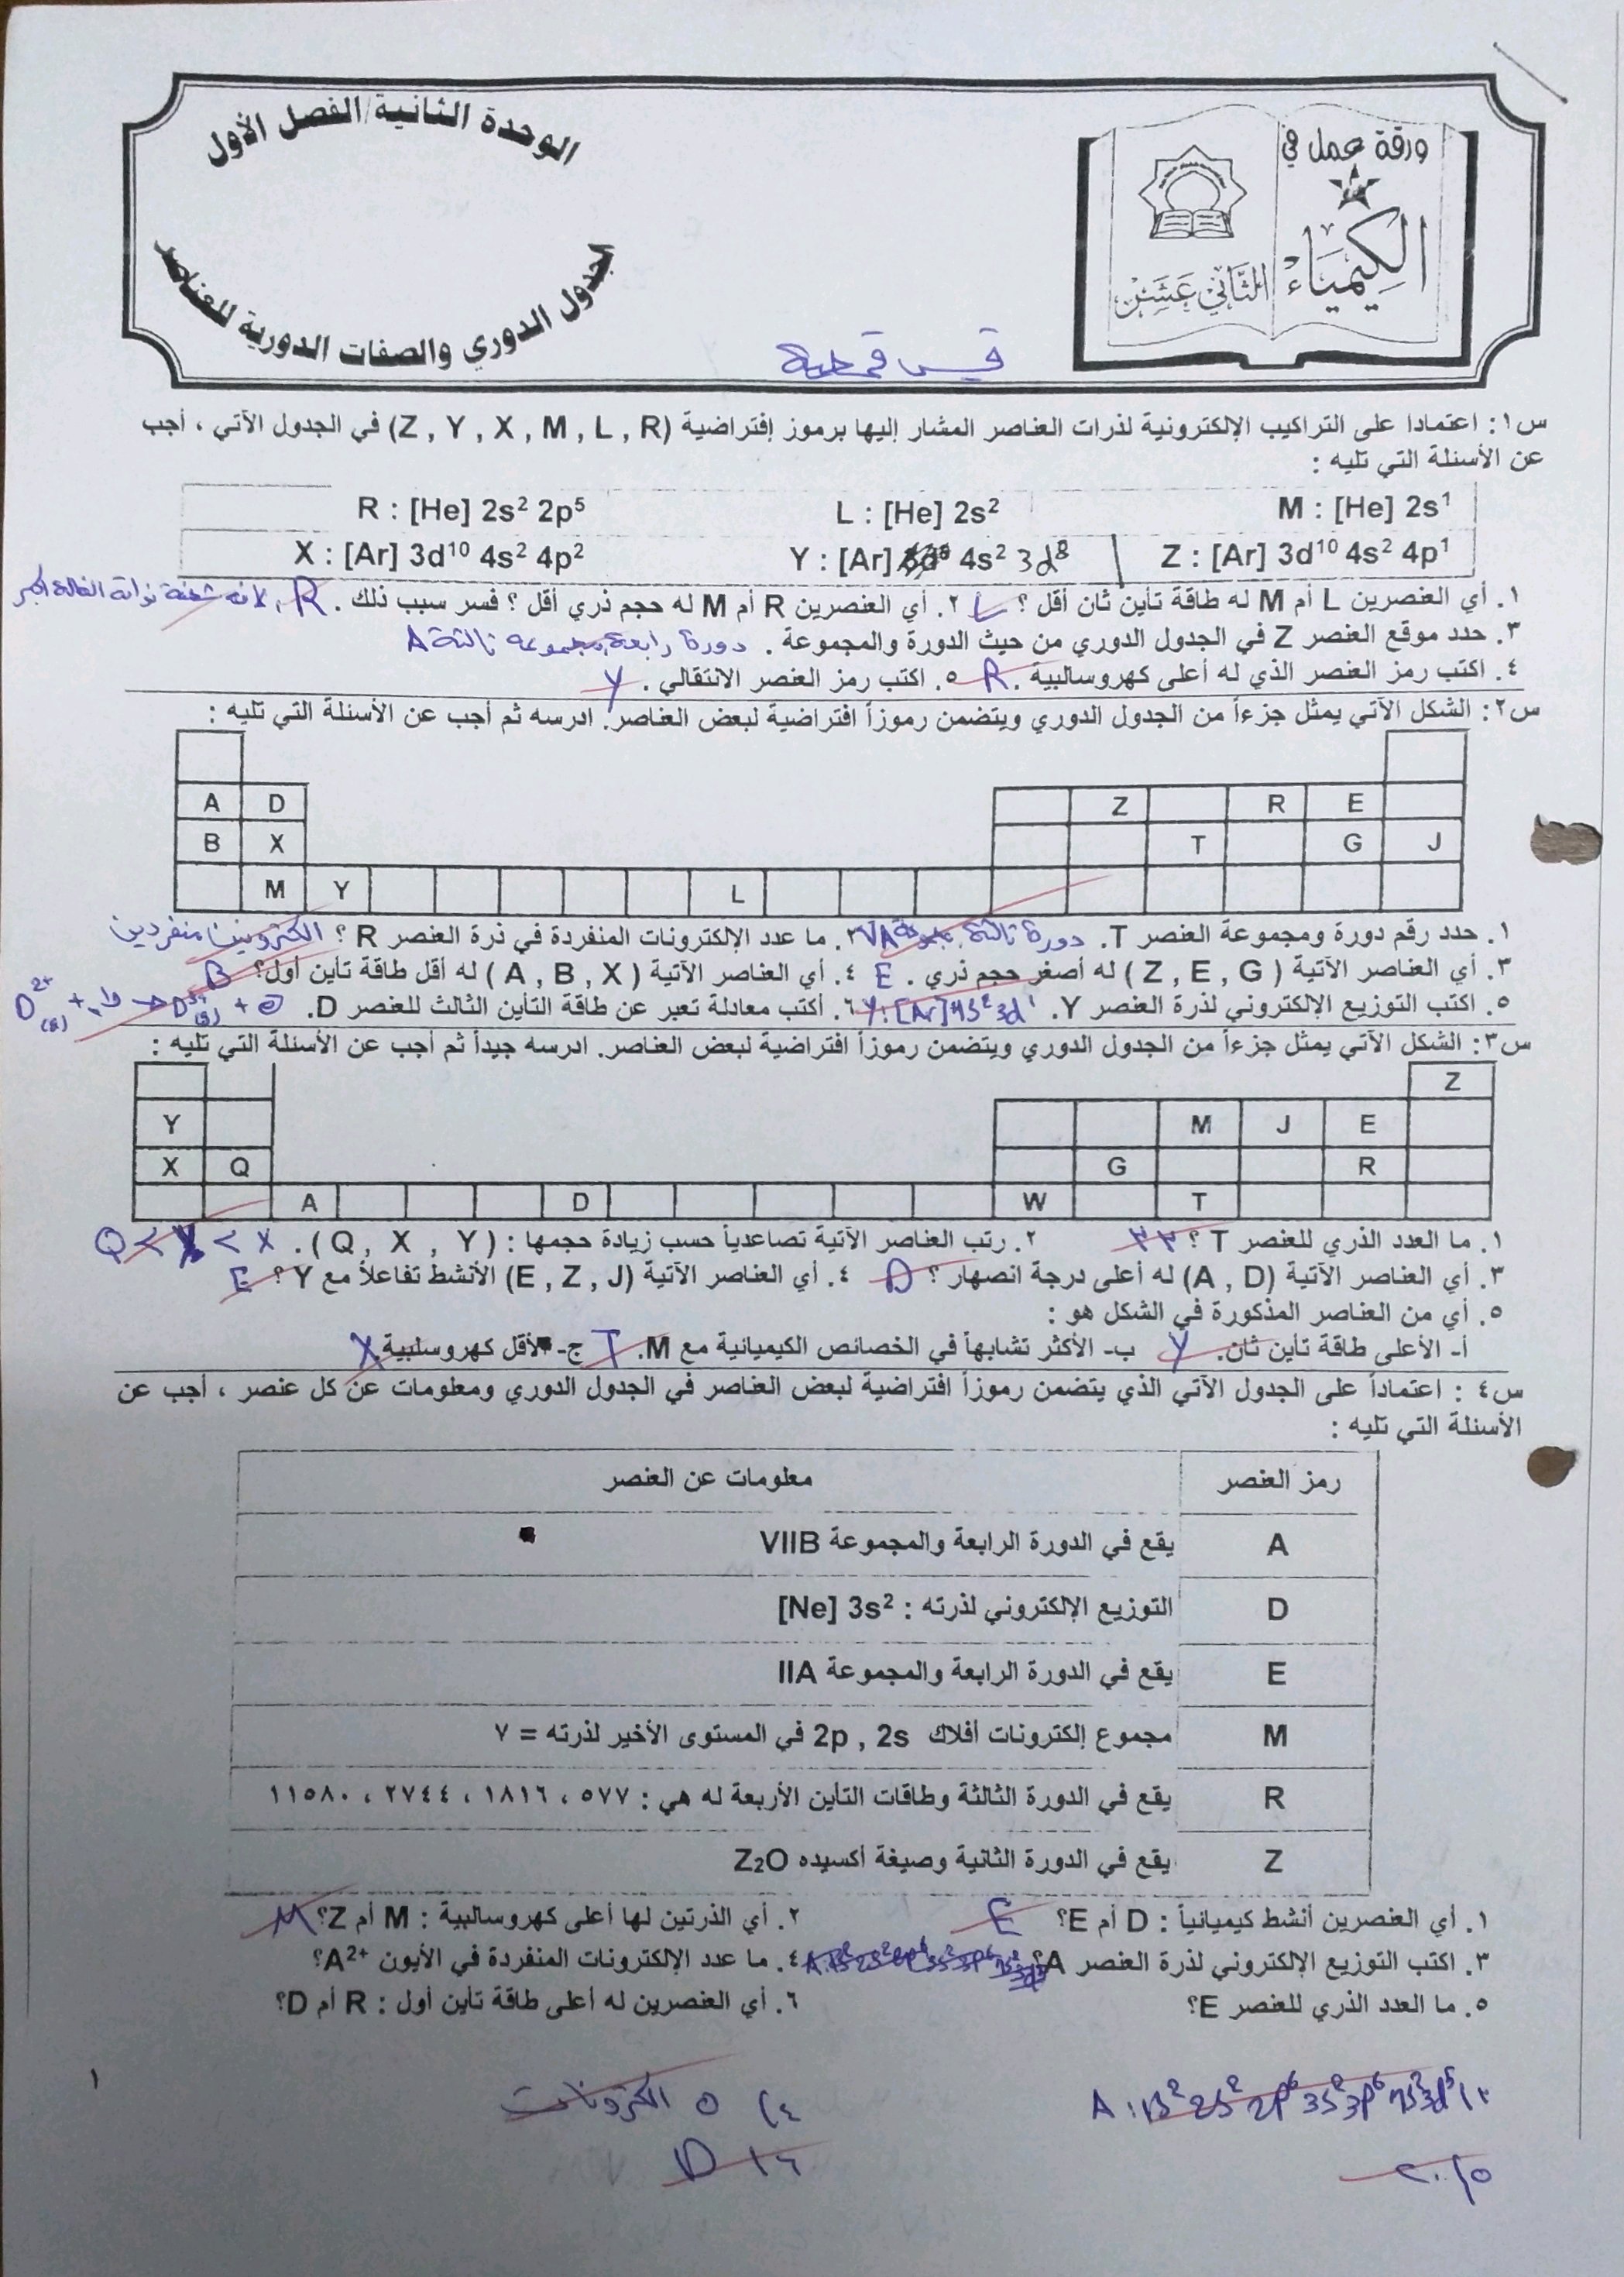 الوحدة الثانية/الفصل الأول
الجدول الدوري والصفات الدورية للعناصر
ورقة عمل في
الكيمياء
الثاني عشر
س١: اعتمادا على التراكيب الإلكترونية لذرات العناصر المشار إليها برموز إفتراضية (Z , Y , X , M , L , R) في الجدول الآتي ، أجب
عن الأسئلة التي تليه :
M : [He] 2s¹ L : [He] 2s² R : [He] 2s² 2p⁵
Z : [Ar] 3d¹⁰ 4s² 4p¹ Y : [Ar] 4s² 3d⁸ X : [Ar] 3d¹⁰ 4s² 4p²
١. أي العنصرين L أم M له طاقة تأين ثان أقل ؟ L ٢. أي العنصرين R أم M له حجم ذري أقل ؟ فسر سبب ذلك . R , لانه شحنة نواته الفعالة أكبر
٣. حدد موقع العنصر Z في الجدول الدوري من حيث الدورة والمجموعة . دورة رابعة، مجموعة ثالثة A
٤. اكتب رمز العنصر الذي له أعلى كهروسالبية . R ٥. اكتب رمز العنصر الانتقالي . Y
س٢: الشكل الآتي يمثل جزءاً من الجدول الدوري ويتضمن رموزاً افتراضية لبعض العناصر. ادرسه ثم أجب عن الأسئلة التي تليه :
A D Z R E
B X T G J
M Y L
١. حدد رقم دورة ومجموعة العنصر T. دورة ثالثة، مجموعة VA ٢. ما عدد الإلكترونات المنفردة في ذرة العنصر R ؟ الكترونين منفردين
٣. أي العناصر الآتية ( Z , E , G ) له أصغر حجم ذري . E ٤. أي العناصر الآتية ( A , B , X ) له أقل طاقة تأين أول؟ B
٥. اكتب التوزيع الإلكتروني لذرة العنصر Y. Y: [Ar] 4s² 3d¹ ٦. أكتب معادلة تعبر عن طاقة التأين الثالث للعنصر D. D²⁺(g) + طاقة → D³⁺(g) + e
س٣: الشكل الآتي يمثل جزءاً من الجدول الدوري ويتضمن رموزاً افتراضية لبعض العناصر. ادرسه جيداً ثم أجب عن الأسئلة التي تليه :
Z
Y M J E
X Q G R
A D W T
١. ما العدد الذري للعنصر T ؟ ٣٣ ٢. رتب العناصر الآتية تصاعدياً حسب زيادة حجمها : ( Q , X , Y ) . Q < Y < X
٣. أي العناصر الآتية (A , D) له أعلى درجة انصهار ؟ D ٤. أي العناصر الآتية (E , Z , J) الأنشط تفاعلاً مع Y ؟ E
٥. أي من العناصر المذكورة في الشكل هو :
أ- الأعلى طاقة تأين ثان. Y ب- الأكثر تشابهاً في الخصائص الكيميائية مع M. T ج- الأقل كهروسلبية. X
س٤ : اعتماداً على الجدول الآتي الذي يتضمن رموزاً افتراضية لبعض العناصر في الجدول الدوري ومعلومات عن كل عنصر ، أجب عن
الأسئلة التي تليه :
رمز العنصر معلومات عن العنصر
A يقع في الدورة الرابعة والمجموعة VIIB
D التوزيع الإلكتروني لذرته : [Ne] 3s²
E يقع في الدورة الرابعة والمجموعة IIA
M مجموع إلكترونات أفلاك 2p , 2s في المستوى الأخير لذرته = ٧
R يقع في الدورة الثالثة وطاقات التأين الأربعة له هي : ٥٧٧ ، ١٨١٦ ، ٢٧٤٤ ، ١١٥٨٠
Z يقع في الدورة الثانية وصيغة أكسيده Z₂O
١. أي العنصرين أنشط كيميائياً : D أم E؟ E ٢. أي الذرتين لها أعلى كهروسالبية : M أم Z؟ M
٣. اكتب التوزيع الإلكتروني لذرة العنصر A؟ ٤. ما عدد الإلكترونات المنفردة في الأيون A²⁺؟
٥. ما العدد الذري للعنصر E؟ ٦. أي العنصرين له أعلى طاقة تأين أول : R أم D؟
٣) A : 1s² 2s² 2p⁶ 3s² 3p⁶ 4s² 3d⁵ ٤) ٥ الكترونات
٥) ٢٠ ٦) D
١